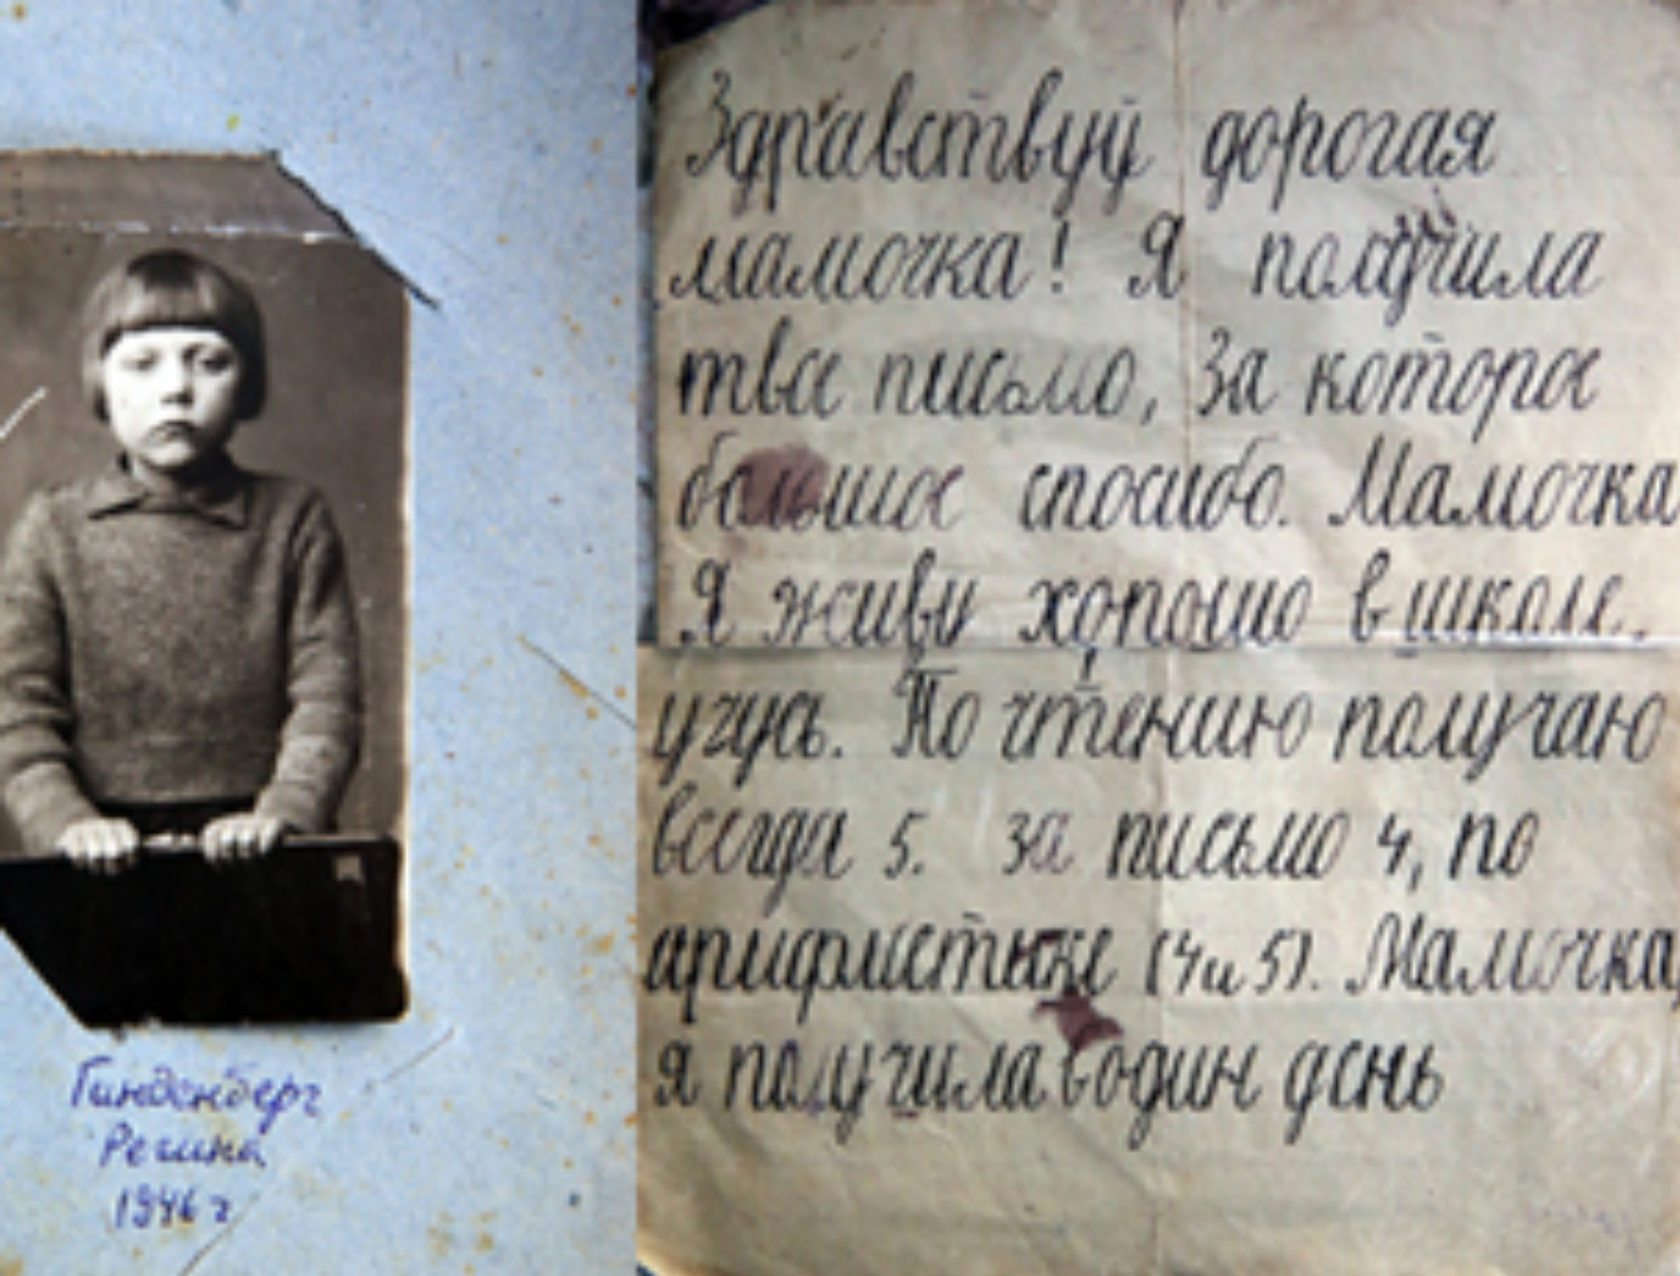 Гинденберг
Регина
1946 г
Здравствуй дорогая
мамочка! Я получила
твое письмо, За которое
большое спосибо. Мамочка
Я живу хорошо в школе.
учусь. По чтению получаю
всегда 5. за письмо 4, по
арифметике (4 и 5). Мамочка
я получила в один день